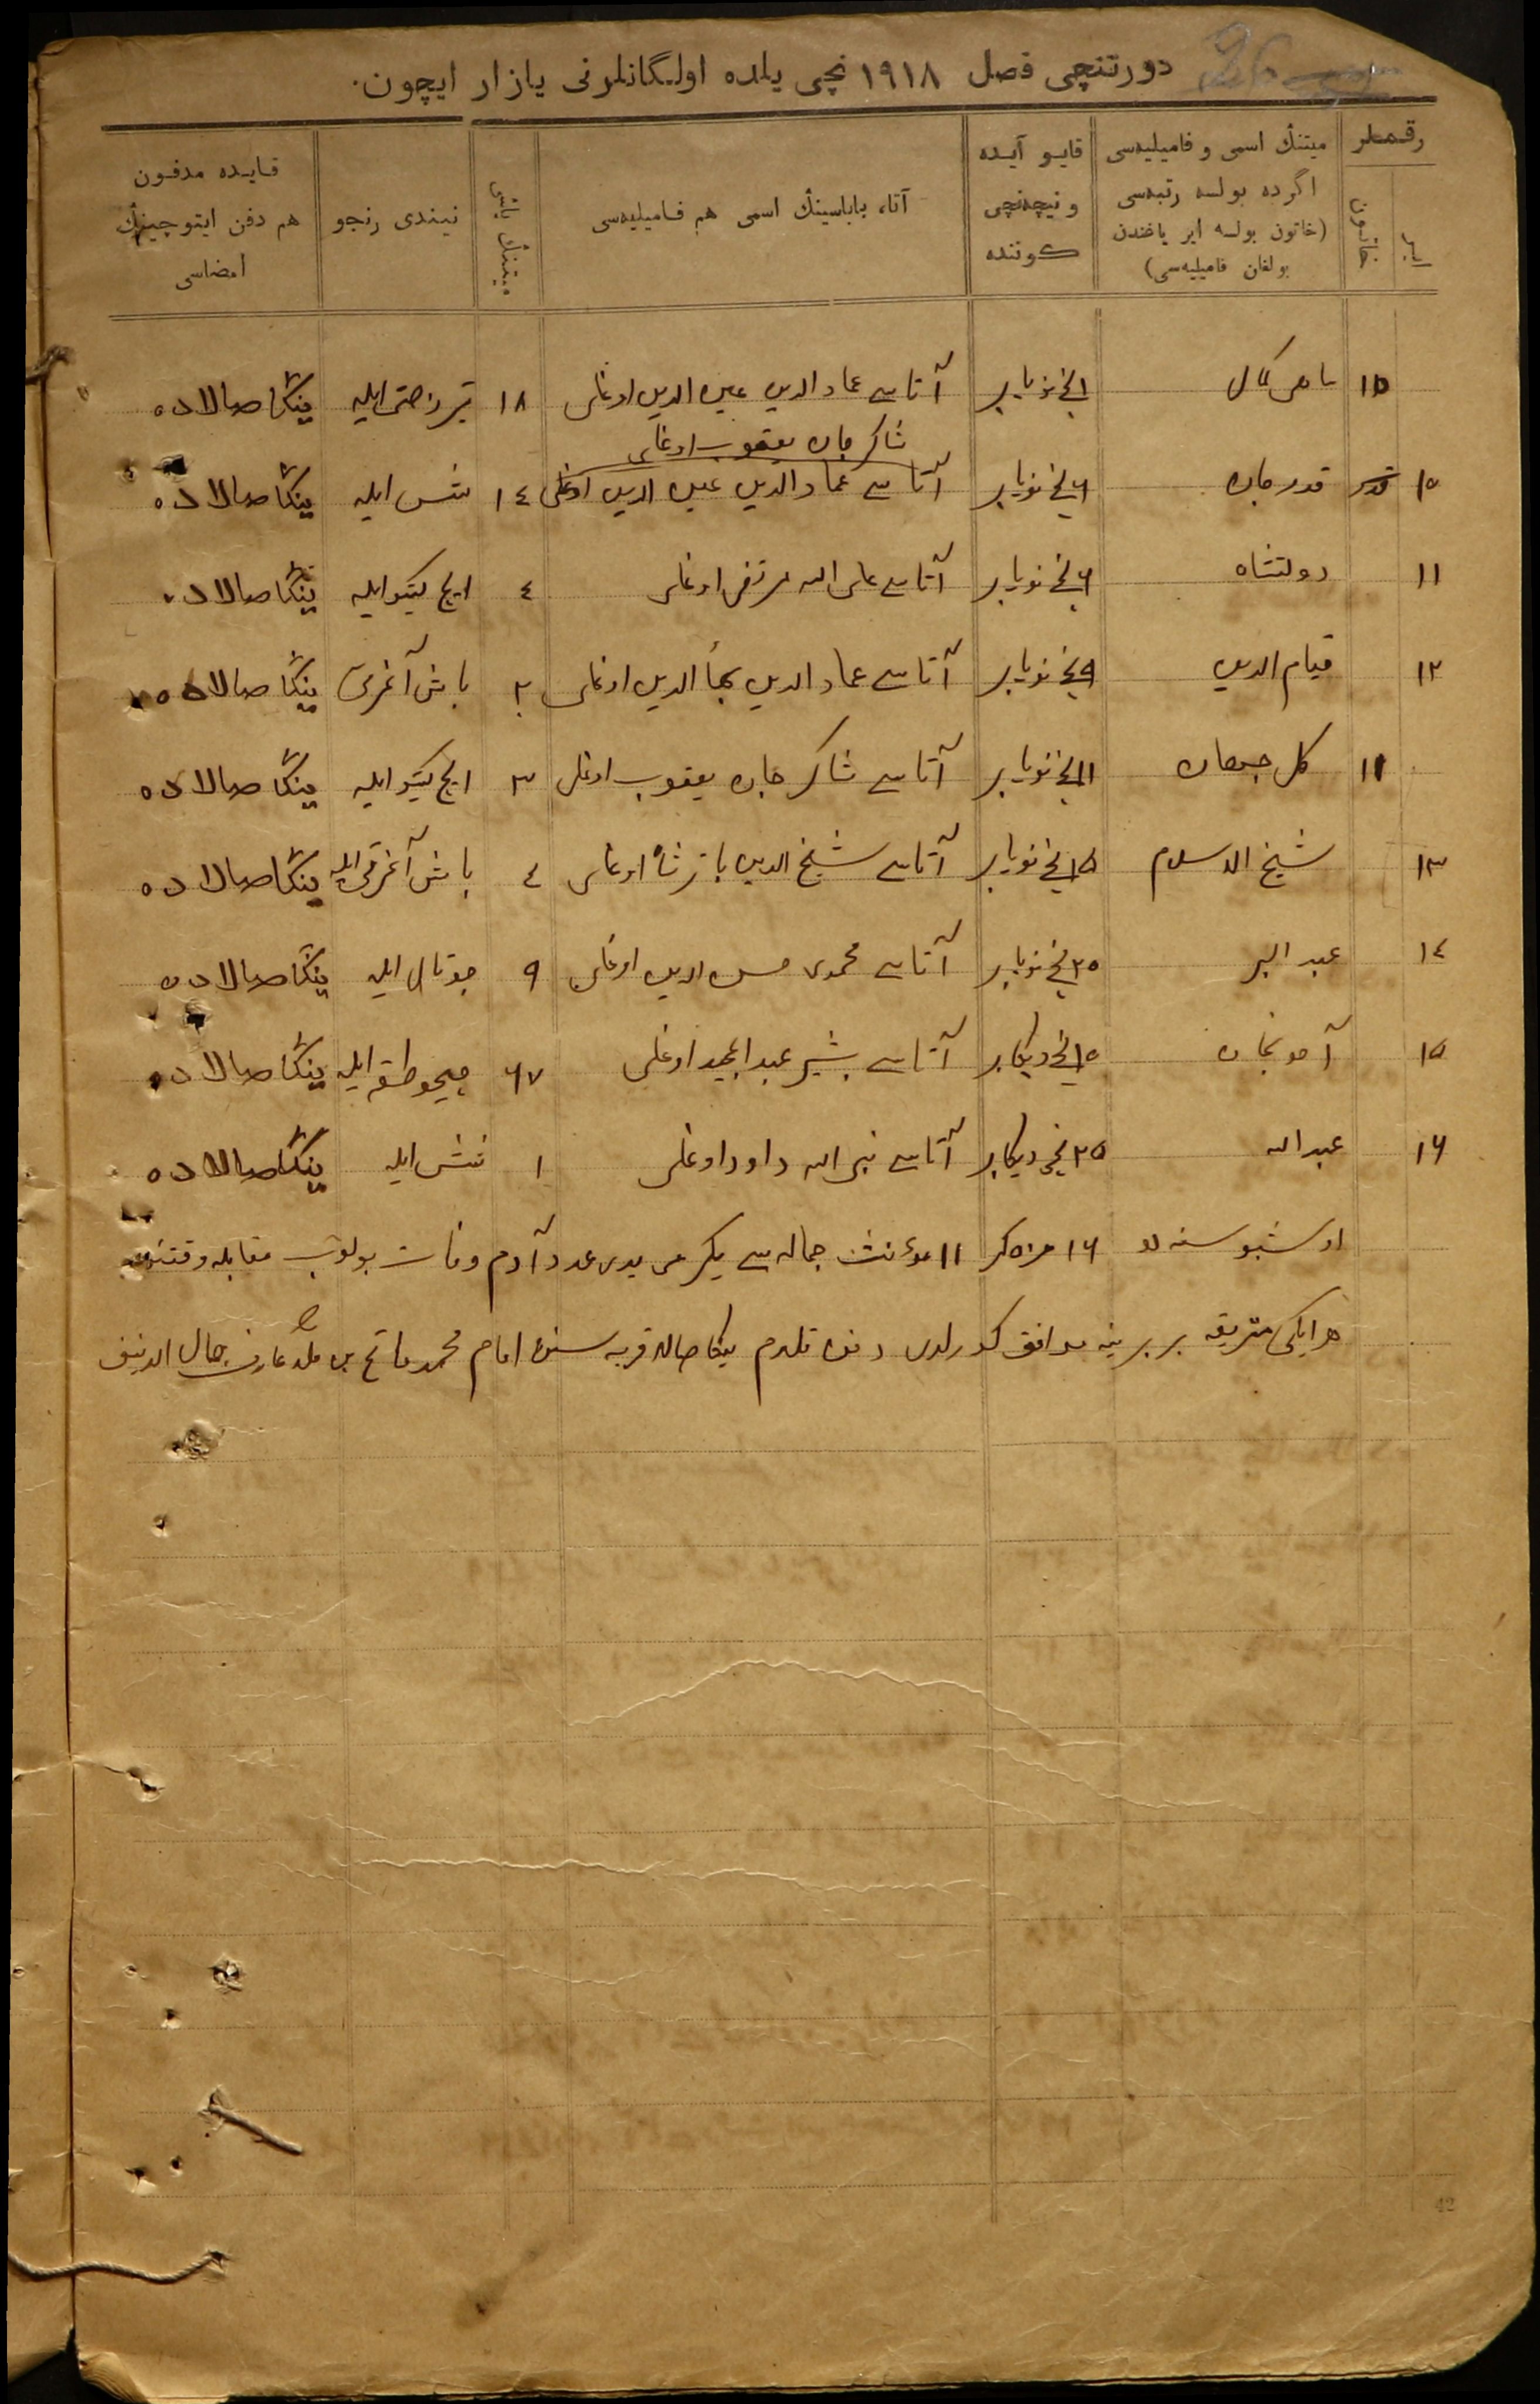 دورتنچی فصل ١٩١٨ نچی یلده اولگانلرنی یازار ایچون.
رقملر
ایر
خاتون
میتنڭ اسمی و فامیلیەسی اگرده بولسه رتبەسی (خاتون بولسه ایر یاغندن بولغان فامیلیەسی)
قایو آیده و نیچەنچی کوننده
آتا، باباسینڭ اسمی هم فامیلیەسی
میتنڭ یاشی
نیندی رنجو
قایده مدفون هم دفن ایتوچینڭ امضاسی
١٥ ماهی کامال ١ نچی نویابر آتاسی عماد الدین عین الدین اوغلی ١٨ ینگا صالاده
شاکر جان یعقوب اوغلی
١٠ قدر جان ٦ نچی نویابر آتاسی عماد الدین عین الدین اوغلی ١٤ ایله ینگا صالاده
١١ دولتشاه ٦ نچی نویابر آتاسی علی الله مرتضی اوغلی ٤ ایچ کیتو ایله ینگا صالاده
١٢ قیام الدین ٩ نچی نویابر آتاسی عماد الدین بهأ الدین اوغلی ٢ باش آغرقی ینگا صالاده
١١ کل جیهان ١١ نچی نویابر آتاسی شاکر جان یعقوب اوغلی ٣ ایچ کیتو ایله ینگا صالاده
١٣ شیخ الاسلام ١٥ نچی نویابر آتاسی شیخ الدین اوغلی ٤ باش آغرقی ایله ینگا صالاده
١٤ عبد البر ٢٥ نچی نویابر آتاسی محمدی حسن الدین اوغلی ٩ یوتال ایله ینگا صالاده
١٥ ١٥ نچی دیکابر آتاسی بشیر عبد المجید اوغلی ٦٧ ایله ینگا صالاده
١٦ عبد الله ٢٥ نچی دیکابر آتاسی نبی الله داود اوغلی ١ ایله ینگا صالاده
اوشبو سنه ده ١٦ مذکر ١١ مؤنث جمله سی یکرمی یدی عدد آدم وفات بولوب مقابله وقتنده
هر ایکی متریقه بر برینه موافق کورلدی دفن قلدم ینگا صالا قریه سننڭ امام محمد فاتح بن ملا عارف جمال الدینف